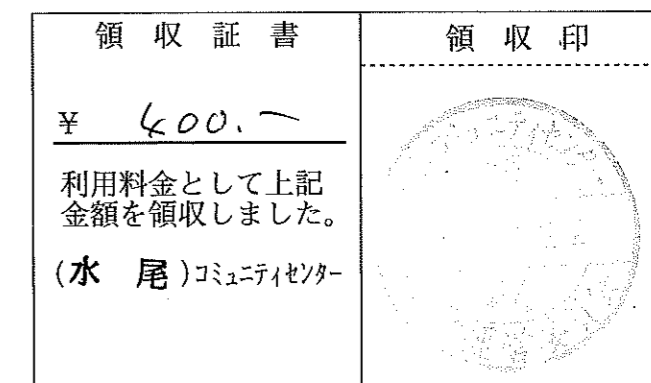 領収証書
領収印
¥ 600.-
利用料金として上記
金額を領収しました。
(水 尾)コミュニティセンター